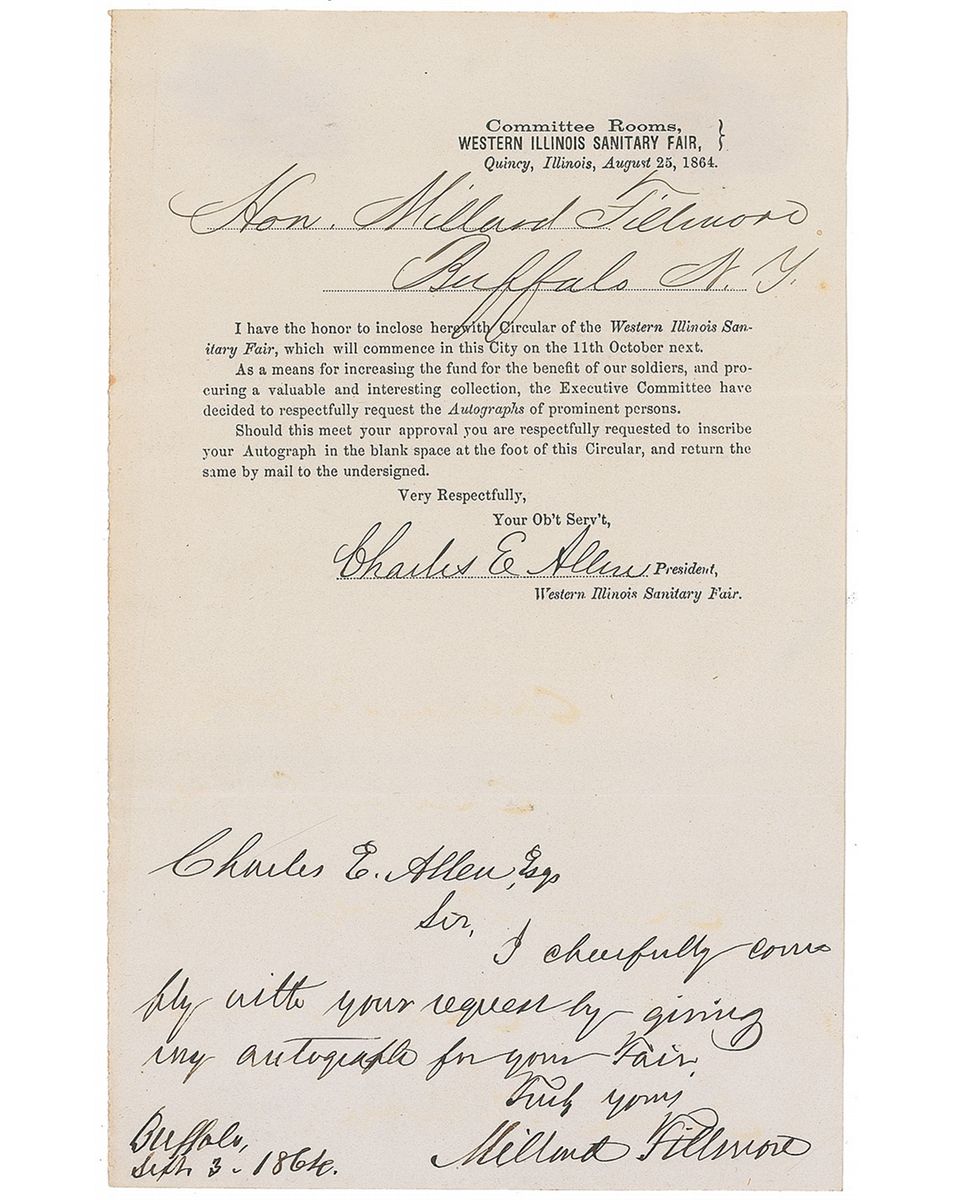 Committee Rooms,
WESTERN ILLINOIS SANITARY FAIR, }
Quincy, Illinois, August 25, 1864.
Hon. Millard Fillmore
Buffalo N. Y.
I have the honor to inclose herewith Circular of the Western Illinois San-
itary Fair, which will commence in this City on the 11th October next.
As a means for increasing the fund for the benefit of our soldiers, and pro-
curing a valuable and interesting collection, the Executive Committee have
decided to respectfully request the Autographs of prominent persons.
Should this meet your approval you are respectfully requested to inscribe
your Autograph in the blank space at the foot of this Circular, and return the
same by mail to the undersigned.
Very Respectfully,
Your Ob't Serv't,
Charles E Allen President,
Western Illinois Sanitary Fair.
Charles E. Allen, Esqr
Sir,
I cheerfully com-
ply with your request by giving
my autograph for your Fair.
Truly yours,
Buffalo,
Sept. 3. 1864.
Millard Fillmore